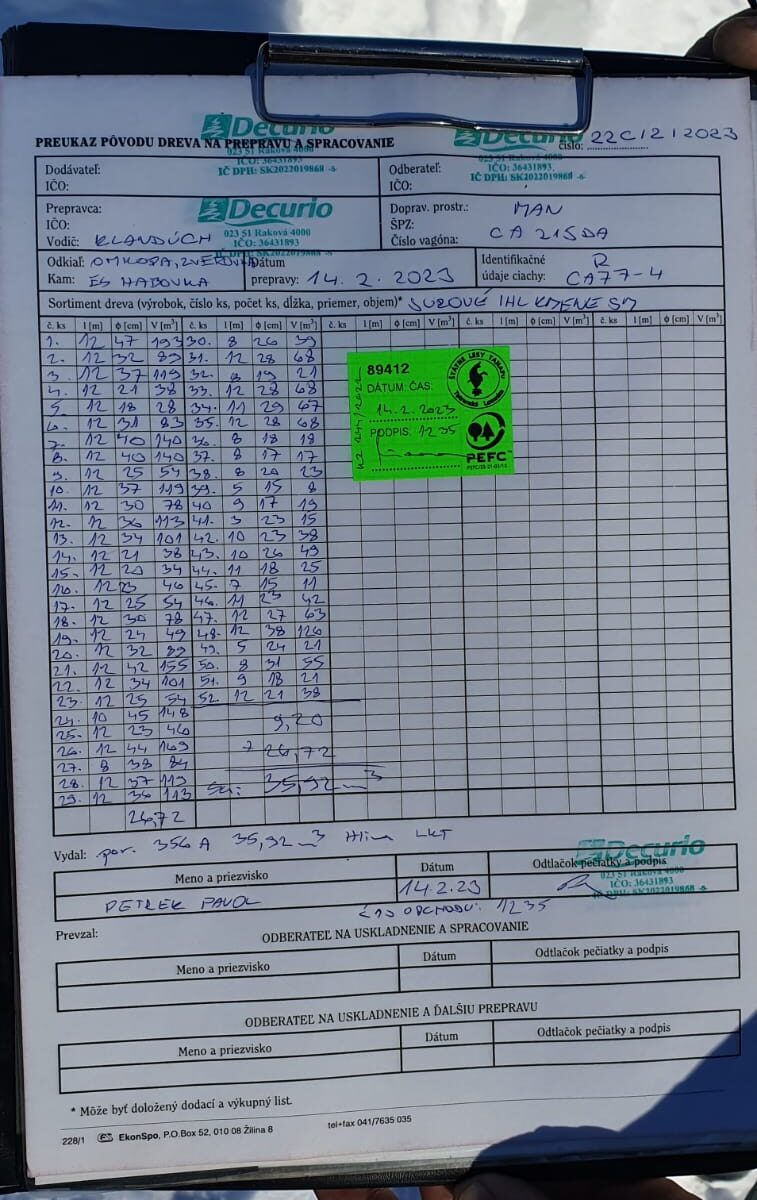 Decurio
023 51 Raková 4000
IČO: 36431893
IČ DPH: SK2022019868 -6-
Decurio
023 51 Raková 4000
IČO: 36431893
IČ DPH: SK2022019868 -6-
PREUKAZ PÔVODU DREVA NA PREPRAVU A SPRACOVANIE číslo: 22C/2/2023
Dodávateľ:
IČO:
Odberateľ:
IČO:
Prepravca:
IČO:
Vodič: KLANDÚCH
Decurio
023 51 Raková 4000
IČO: 36431893
Doprav. prostr.: MAN
ŠPZ:
Číslo vagóna: CA 215DA
Odkiaľ:
Kam: ES HABOVKA
Dátum
prepravy: 14.2.2023
Identifikačné
údaje ciachy: R CA77-4
Sortiment dreva (výrobok, číslo ks, počet ks, dĺžka, priemer, objem)* SUROVÉ IHL KMENE SM
č. ks l [m] φ [cm] V [m³] č. ks l [m] φ [cm] V [m³] č. ks l [m] φ [cm] V [m³] č. ks l [m] φ [cm] V [m³] č. ks l [m] φ [cm] V [m³]
1. 12 47 193 30. 8 26 39
2. 12 32 89 31. 12 28 68
3. 12 37 119 32. 8 19 21
4. 12 21 38 33. 12 28 68
5. 12 18 28 34. 11 29 67
6. 12 31 83 35. 12 28 68
7. 12 40 140 36. 8 18 18
8. 12 40 140 37. 8 17 17
9. 12 25 54 38. 8 20 23
10. 12 37 119 39. 5 15 8
11. 12 30 78 40 9 17 19
12. 12 36 113 41. 3 23 15
13. 12 34 101 42. 10 23 38
14. 12 21 38 43. 10 26 49
15. 12 20 34 44. 11 18 25
16. 12 23 46 45. 7 15 11
17. 12 25 54 46. 11 23 42
18. 12 30 78 47. 12 27 63
19. 12 24 49 48. 12 38 126
20. 12 32 89 49. 5 24 21
21. 12 42 155 50. 8 31 55
22. 12 34 101 51. 9 18 21
23. 12 25 54 52. 12 21 38
24. 10 45 148
25. 12 23 46 9,20
26. 12 44 169 26,72
27. 8 38 84
28. 12 37 119 35,92 m³
29. 12 36 113
26,72
89412
DÁTUM: ČAS:
14.2.2023
PODPIS. 1235
ŠTÁTNE LESY TANAPU
Tatranská Lomnica
PEFC
Vydal: por. 356 A 35,92 m³ Hlina LKT
Meno a priezvisko Dátum Odtlačok pečiatky a podpis
PETREK PAVOL 14.2.23
Decurio
023 51 Raková 4000
IČO: 36431893
IČ DPH: SK2022019868 -6-
ČAS ODCHODU: 1235
Prevzal:
ODBERATEĽ NA USKLADNENIE A SPRACOVANIE
Meno a priezvisko Dátum Odtlačok pečiatky a podpis
ODBERATEĽ NA USKLADNENIE A ĎALŠIU PREPRAVU
Meno a priezvisko Dátum Odtlačok pečiatky a podpis
* Môže byť doložený dodací a výkupný list.
228/1 EkonSpo, P.O.Box 52, 010 08 Žilina 8 tel+fax 041/7635 035